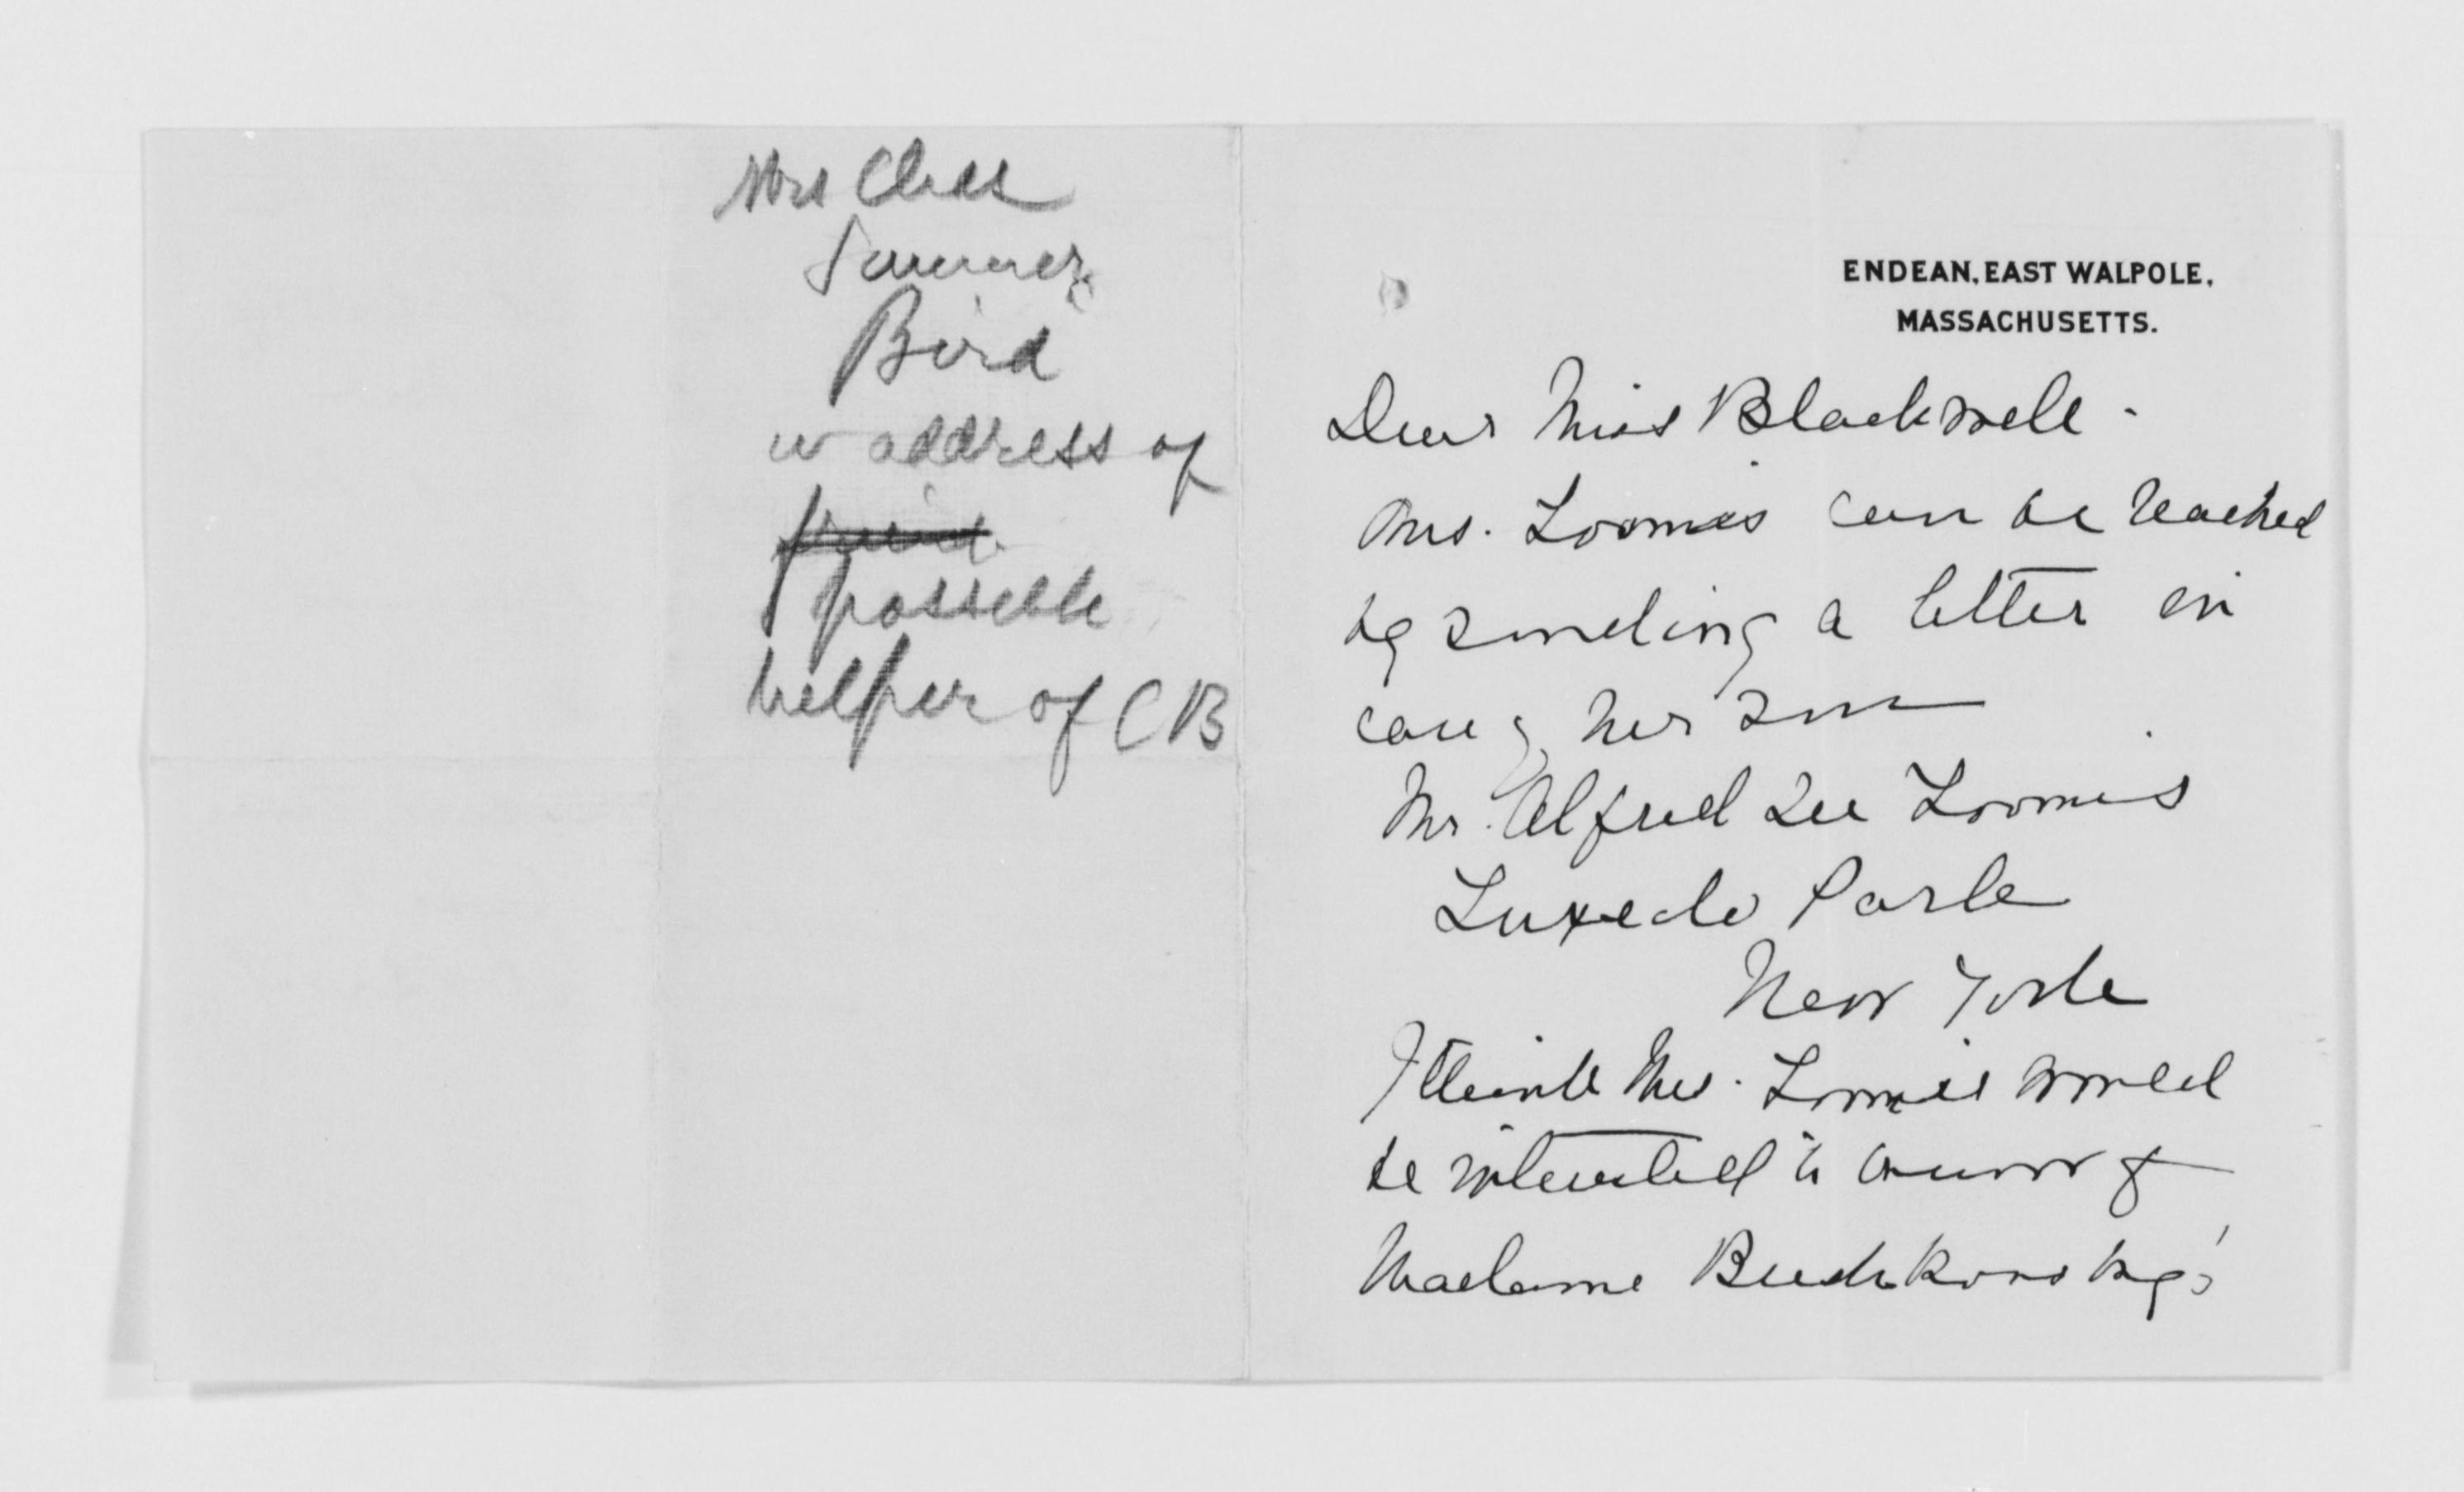 Mrs Chas
Sumner
Bird
w address of
friend
possible
helper of CB
ENDEAN, EAST WALPOLE,
MASSACHUSETTS.
Dear Miss Blackwell -
Mrs. Loomis can be reached
by sending a letter in
care of her son
Mr. Alfred Lee Loomis
Tuxedo Park
New York
I think Mrs. Loomis would
be interested to know of
Madame